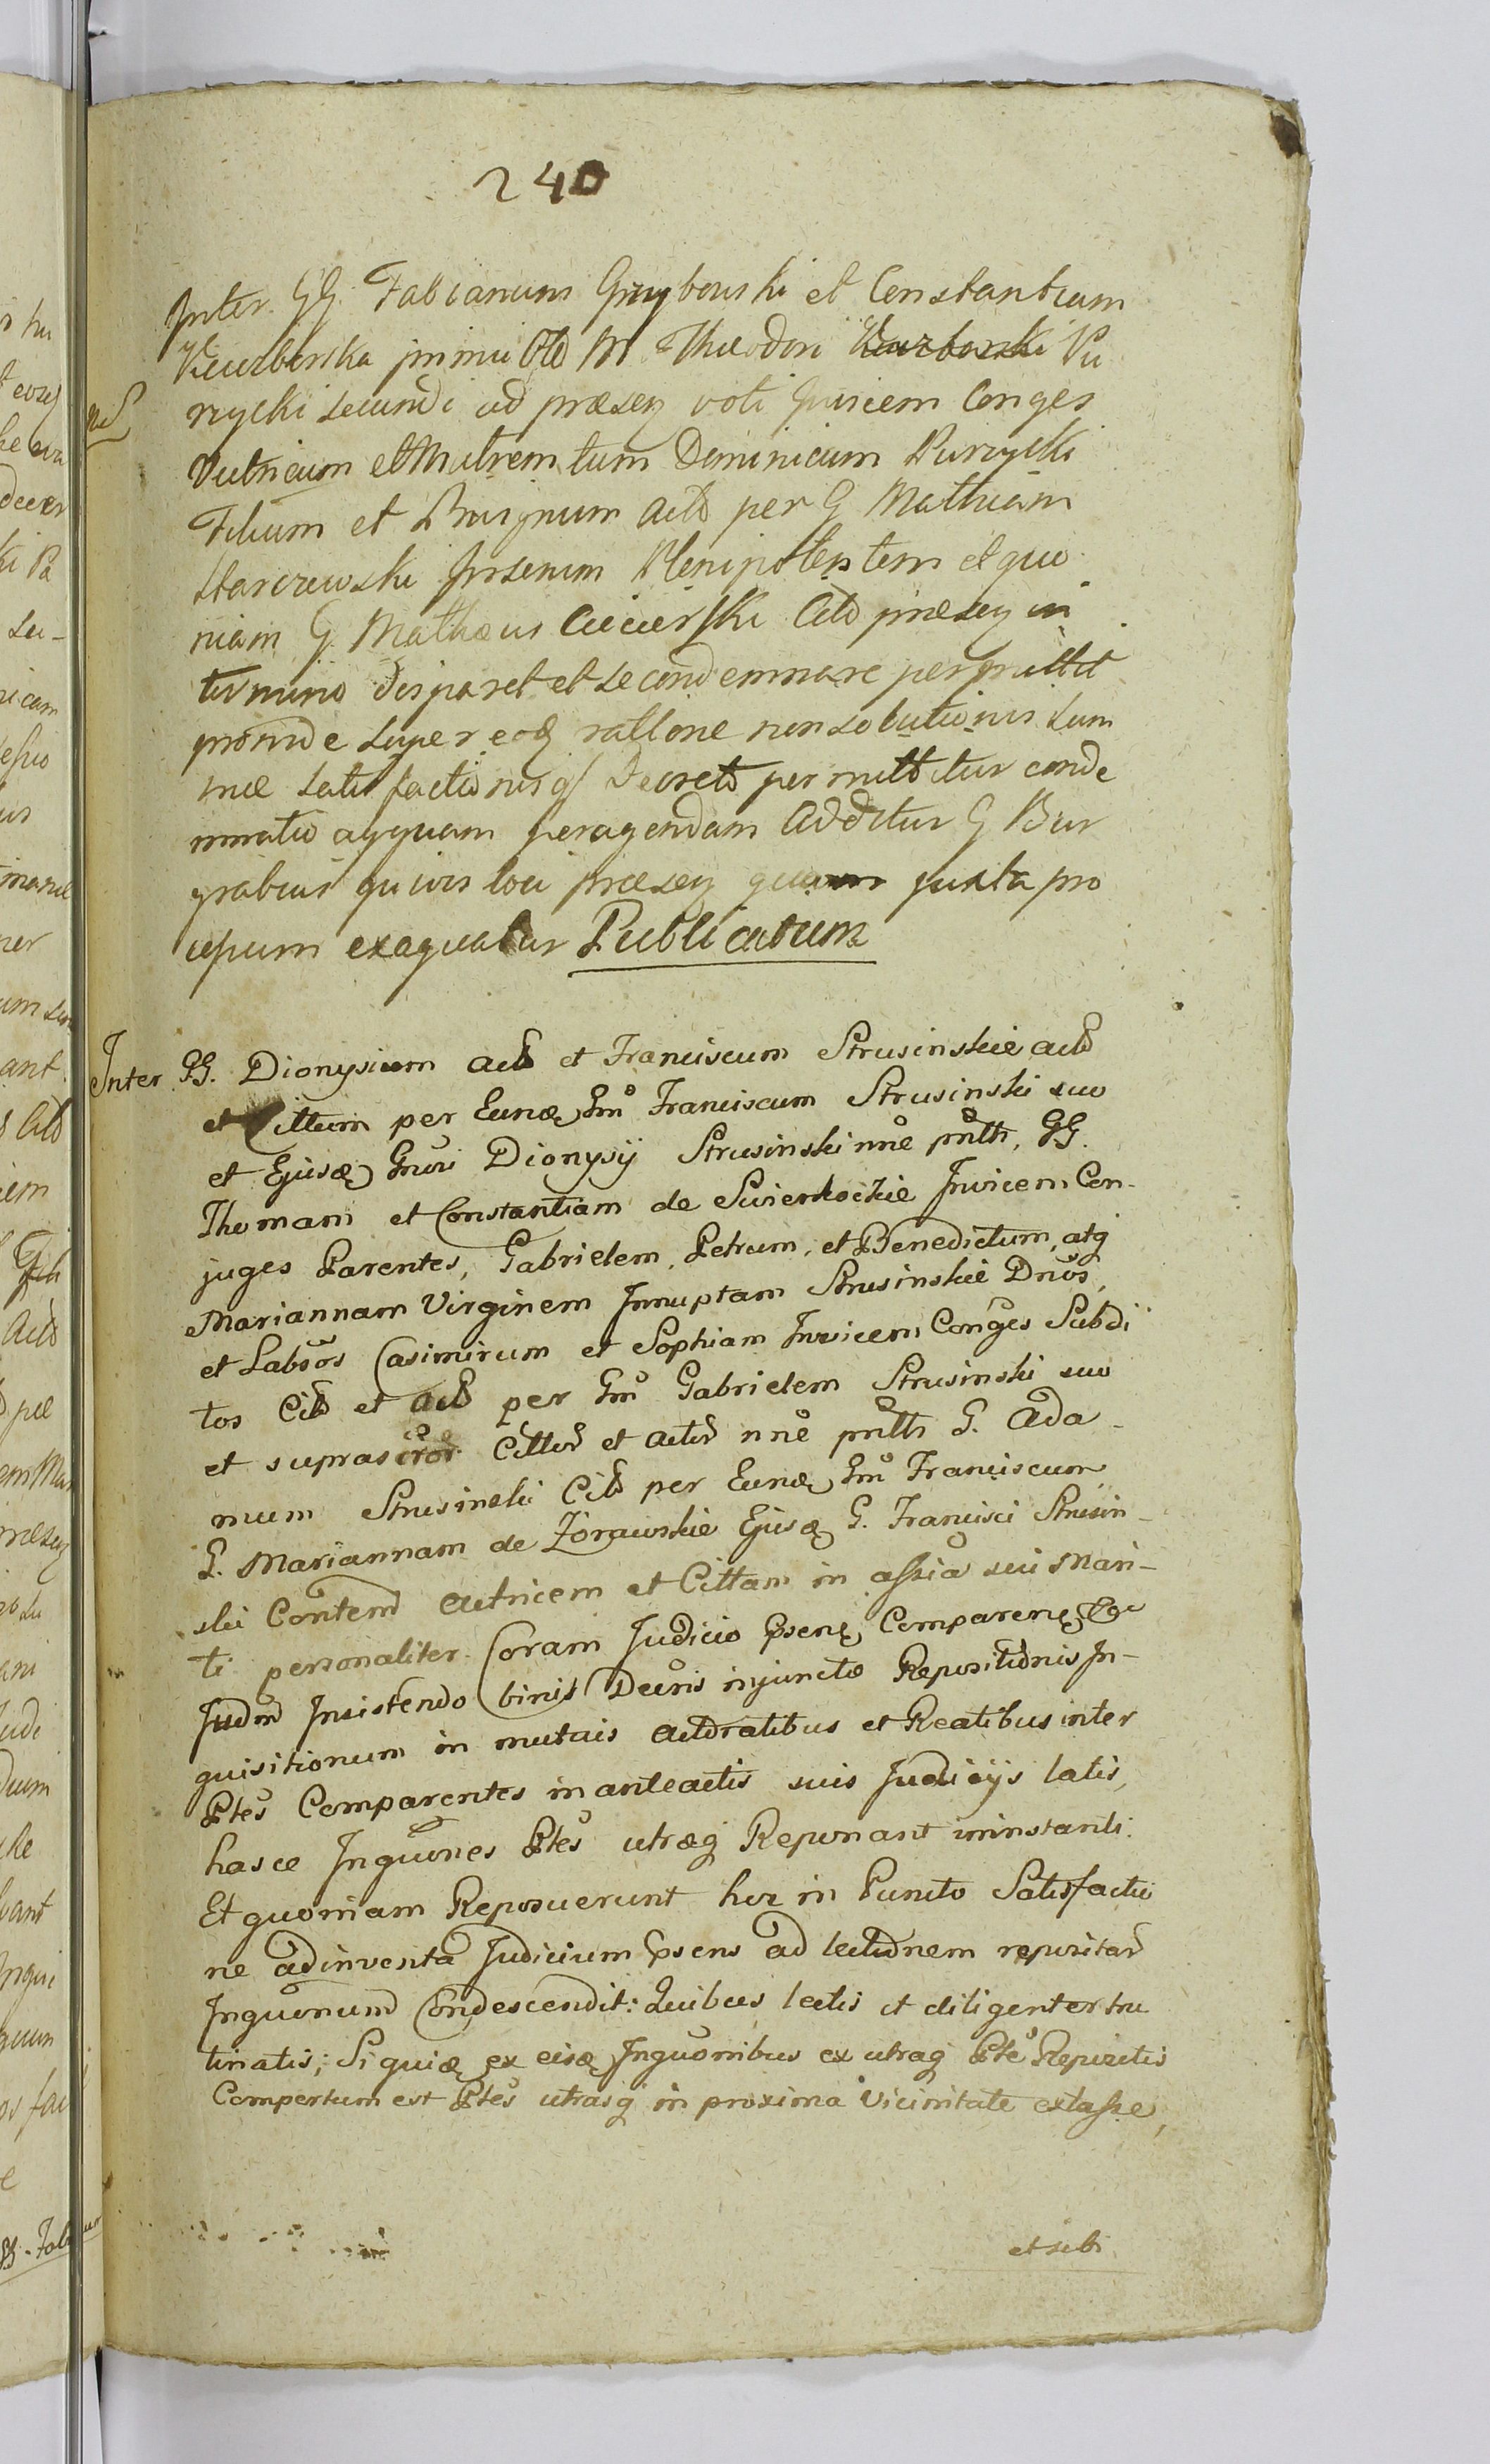 240
Inter GG. Fabianum Grzybowski et Constantiam
primi M Theodori Pu
rzycki secundi ad præsen voti Invicem Conges
Vitricum et Matrem tum Dominicum Purzycki
Filium et Privignum Acto per G Mathiam
Starczewski Plenipotentem et quo
niam G. Mathæus Ciecierski Cito præsen in
termino disparet et se condemnare permittit
proinde super eod ratione non solutionis sum
mæ satisfactionisq Decreto permittitur conde
mnatio ad quam peragendam Additur G Bur
grabius quivis loci præsen juxta pro
cessum exequatur Publicatum
Inter GG. Dionysium acto et Franciscum Strusinskie acto
et Cittum per Eund Gm Franciscum Strusinski suo
et Ejusd Gnrosi Dionysij Strusinski nne pntti, GG.
Thomam et Constantiam de Swierkockie Invicem Con-
juges Parentes, Gabrielem, Petrum, et Benedictum, atq
Mariannam Virginem Innuptam Strusinskie Dnos,
et Labsos Casimirum et Sophiam Invicem Conges Subdi
tos Cit et act per Gm Gabrielem Strusinski suo
et suprascror Cittor et actor nne pntti G. Ada-
mum Strusinski Cito per Eund Gm Franciscum
G. Mariannam de Zorawskie Ejusd G. Francisci Strusin-
ski Contem Actricem et Cittam in assia sui Mari-
ti personaliter Coram Judicio Psens Comparens &
Judm Insistendo binis Decris injunctæ Repositionis In-
quisitionum in mutuis actoratibus et Reatibus inter
Ptes Comparentes in anteactis suis Judicijs latis,
hasce Inquones Ptes utræq Reponant in instanti.
Et quoniam Reposuerunt hoc in Puncto Satisfactio
ne adinventa Judicium Psens ad lectionem repositar
Inquonum Condescendit: Quibus lectis et diligenter tru
tinatis; Siquid ex eisd Inquonibus ex utraq Pte Repositis
Compertum est Ptes utrasq in proxima Vicinitate extasse,
et sibi